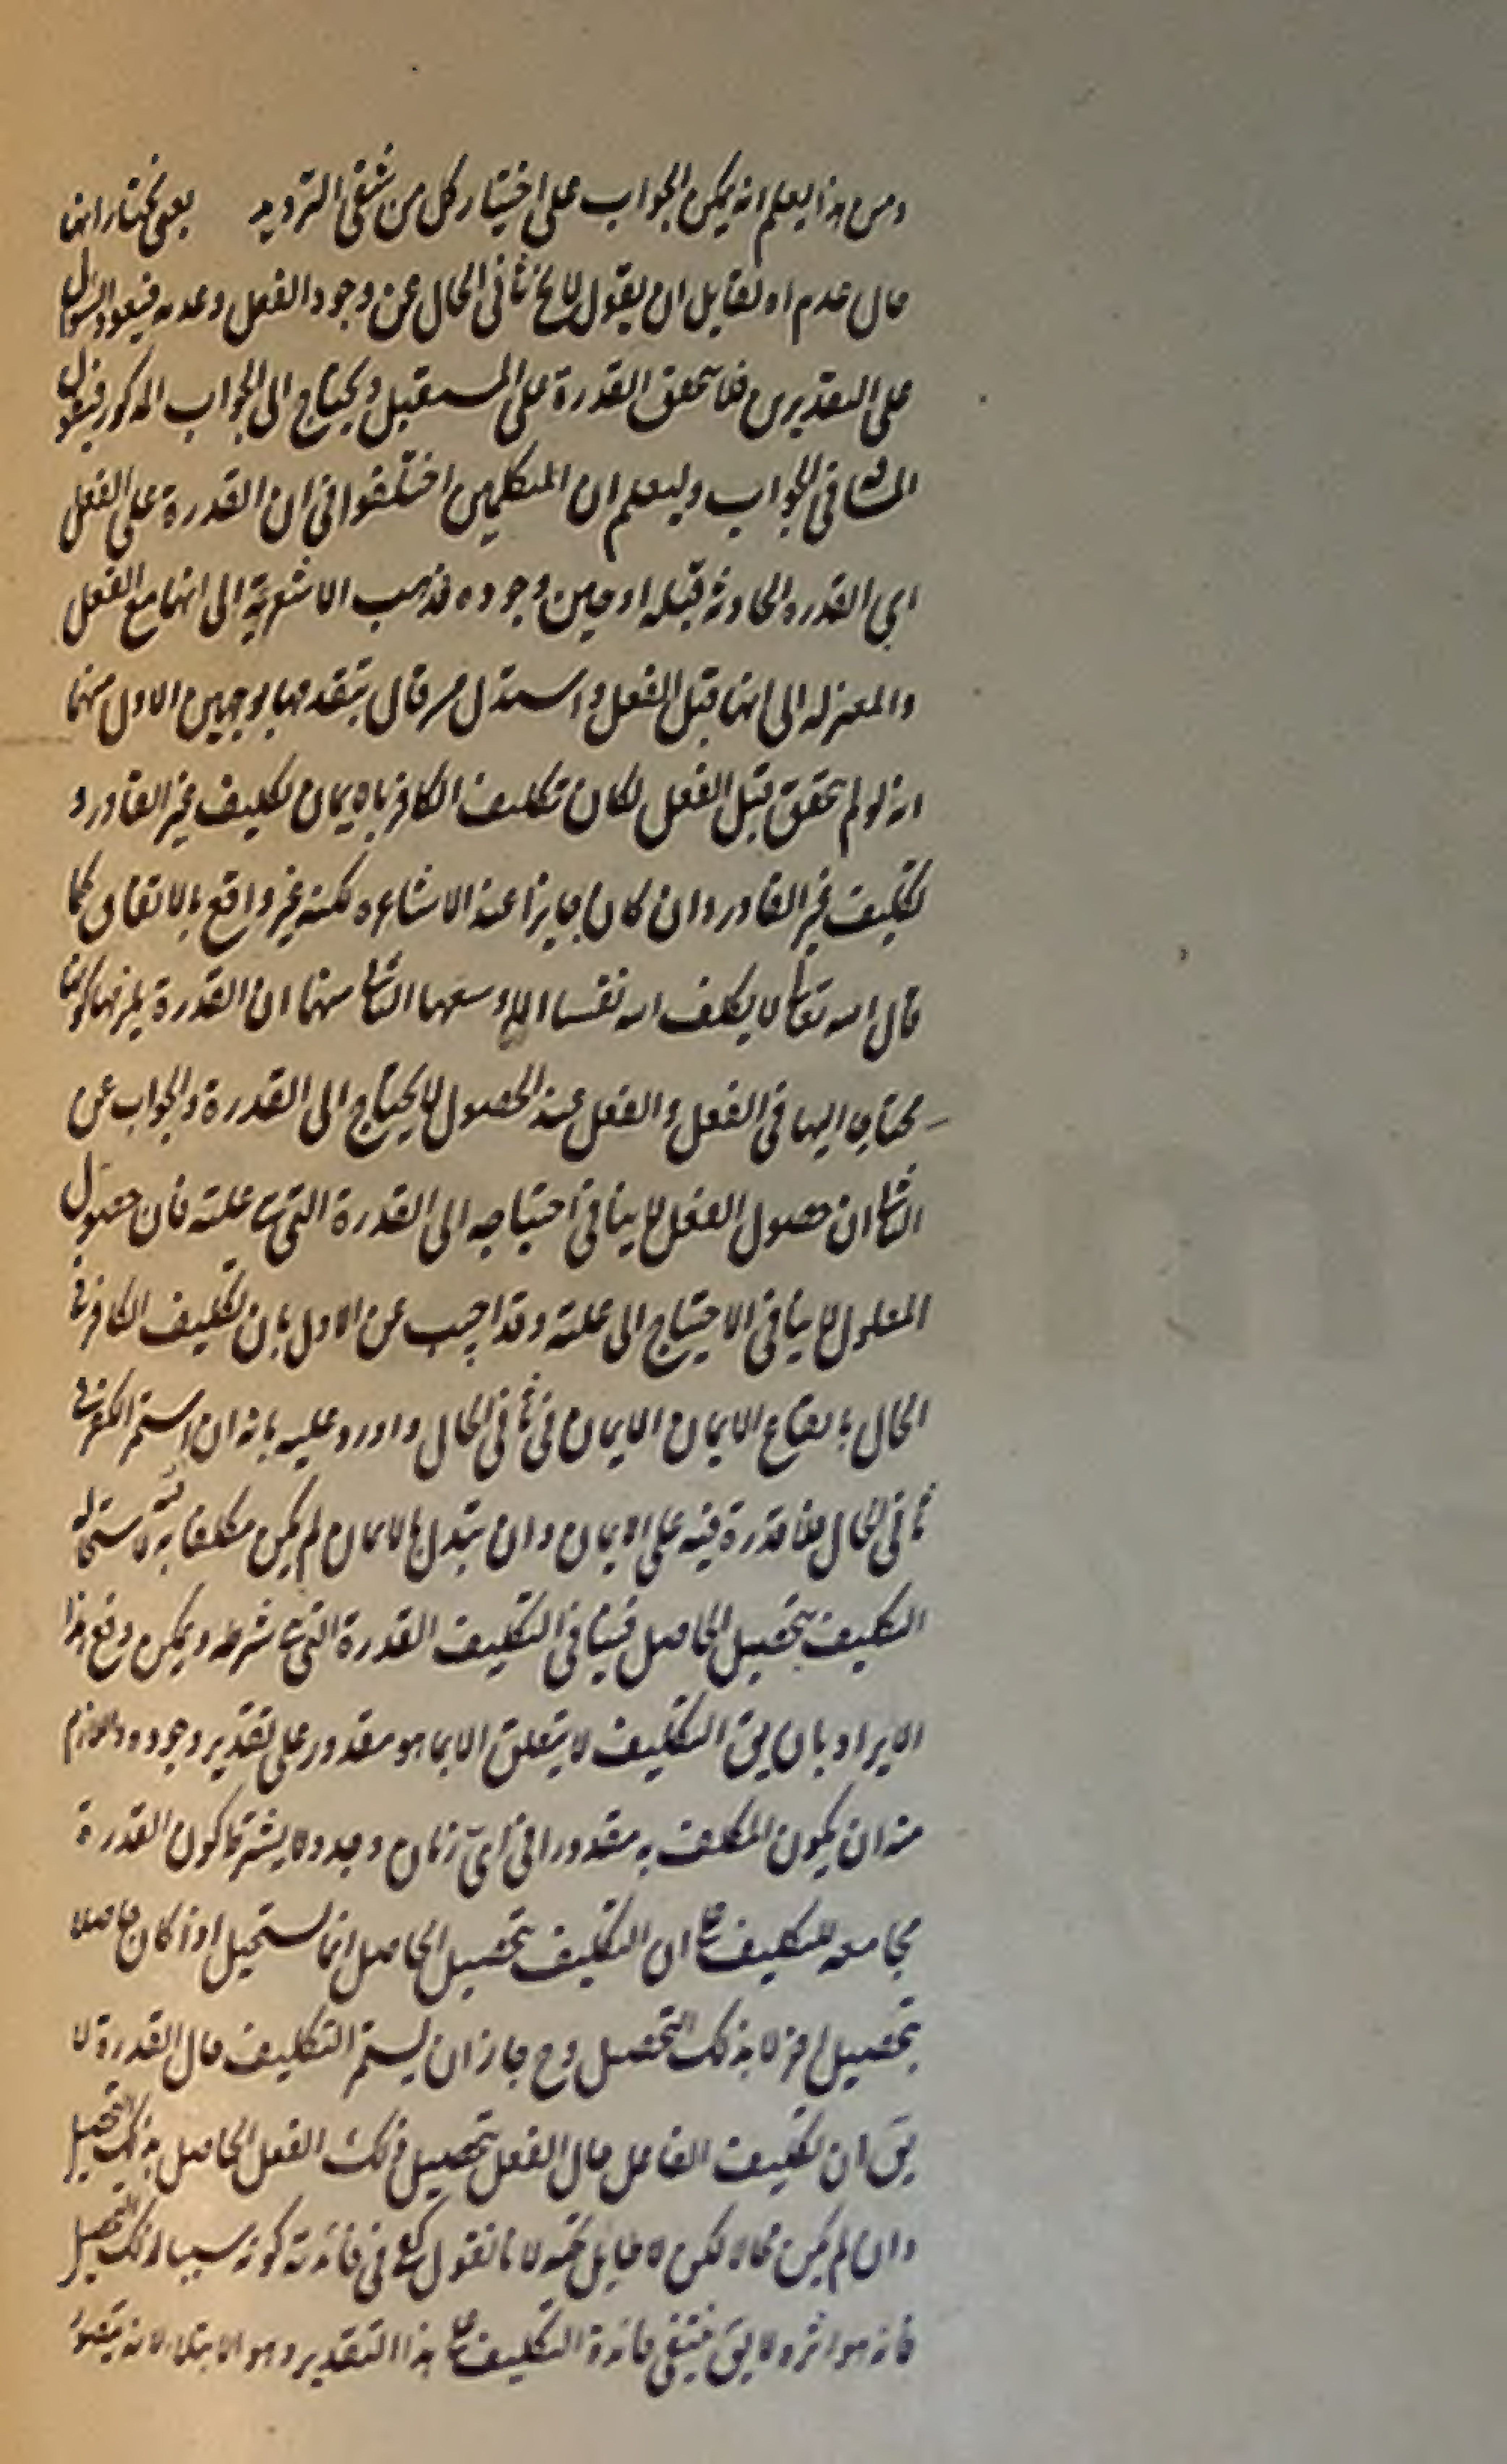 ومن هذا يعلم انه يمكن الجواب على اختيار كل من شقى الترديد يعنى نختار انها
حال عدم اه لقايل ان يقول لا يخ ثانى الحال عن وجود الفعل وعدمه فيعود السؤال
على التقديرين فلا تحقق القدرة على المستقبل ويحتاج الى الجواب المذكور فيقول
فى الجواب وليعلم ان المتكلمين اختلفوا فى ان القدرة على الفعل
اى القدره الحادثه قبله او حين وجوده فذهب الاشعرية الى انها مع الفعل
والمعتزله الى انها قبل الفعل واستدل من قال بتقدمها بوجهين الاول منهما
انه لو لم تحقق قبل الفعل لكان تكليف الكافر بالايمان تكليف غير القادر و
تكليف غير القادر وان كان جايزا عند الاشاعره لكنه غير واقع بالاتفاق كما
قال الله تعا لا يكلف الله نفسا الا وسعها الثانى منهما ان القدرة يلزمها كونها
محتاجا اليها فى الفعل والفعل عند الحصول لا يحتاج الى القدرة والجواب عن
الثانى ان حصول الفعل لا ينافى احتياجه الى القدرة التى هى علته فان حصول
المعلول لا ينافى الاحتياج الى علته وقد اجيب عن الاول بان تكليف الكافر فى
الحال بايقاع الايمان الايمان فى ثانى الحال واورد عليه بانه ان استمر الكفر فى
ثانى الحال فلا قدرة فيه على الايمان وان تبدل بالايمان لم يكن مكلفا به لاستحالة
التكليف بتحصيل الحاصل فينافى التكليف القدرة التى هى شرطه ويمكن دفع هذا
الايراد بان يق التكليف لا يتعلق الا بما هو مقدور على تقدير وجوده واللازم
منه ان يكون المكلف به مقدورا فى اى زمان وجد ولا يشترط كون القدرة
مجامعه للتكليف مع ان التكليف بتحصيل الحاصل انما يستحيل اذا كان حاصلا
بتحصيل اخر لا بذلك التحصيل وح جاز ان يستمر التكليف حال القدرة لا
يق ان تكليف الفاعل حال الفعل بتحصيل ذلك الفعل الحاصل بذلك التحصيل
وان لم يكن محالا لكن لا طايل تحته لانا نقول يكفى فى فائدته كونه سببا لذلك التحصيل
فانه هو اثره ولا يق فينتفى فائدة التكليف على هذا التقدير وهو الابتلاء لانه يتصور